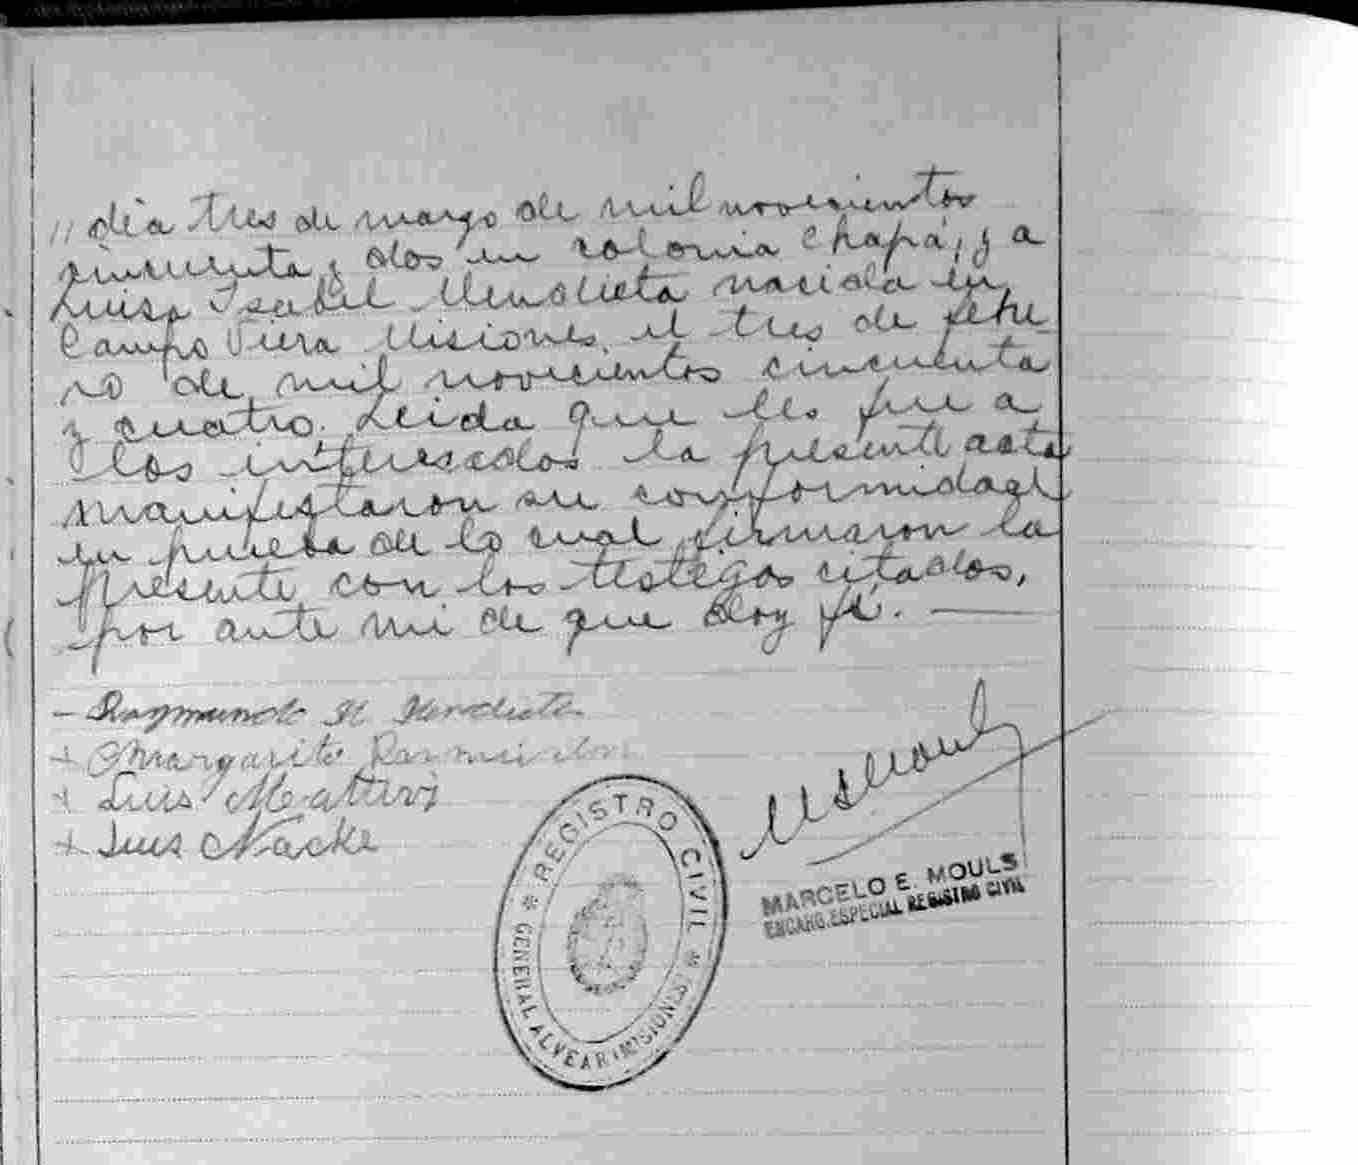 // dia tres de marzo de mil novecientos
cincuenta y dos en colonia Chapá, y a
Luisa Isabel Mendieta nacida en
Campo Viera Misiones el tres de febre
ro de mil novecientos cincuenta
y cuatro. Leida que les fue a
los interesados la presente acta
manifestaron su conformidad
en prueba de lo cual firmaron la
presente con los testigos citados,
por ante mi de que doy fé.
- Raymundo Mendieta
+ Margarito
+ Luis
+ Luis Nacke
REGISTRO CIVIL
GENERAL ALVEAR (MISIONES)
MARCELO E. MOULS
ENCARG. ESPECIAL REGISTRO CIVIL